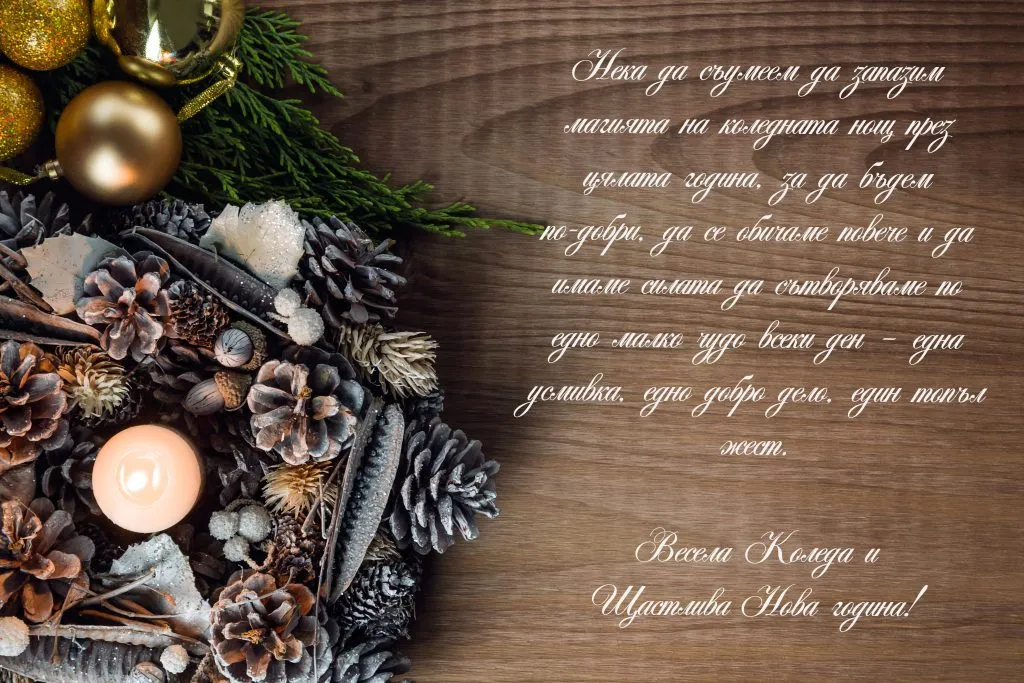 Нека да съумеем да запазим
магията на коледната нощ през
цялата година, за да бъдем
по-добри, да се обичаме повече и да
имаме силата да сътворяваме по
едно малко чудо всеки ден - една
усмивка, едно добро дело, един топъл
жест.
Весела Коледа и
Щастлива Нова година!